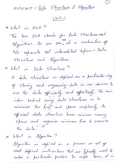 Data Structure & Algorithm
Unit-1
* What is DSA?
The term DSA stands for Data Structure and
Algorithms. As the
separate yet interrelated topics - Data
Structure and Algorithms.
* What is Data Structure?
A data structure is defined as a particular way
of storing and organizing data in our
use the data efficiently and effectively. The main
idea behind using data structures is to
minimize the time and space complexity. An
efficient data structure uses minimum memory
space and requires minimum time to execute
the data.
* What is Algorithm?
Algorithm is defined as a process or set of
well defined instructions that are typically used to
solve a particular problem or